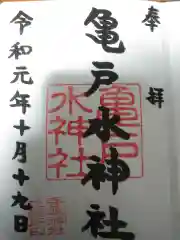 奉拝
亀戸水神社
亀戸
水神社
令和元年十月十九日